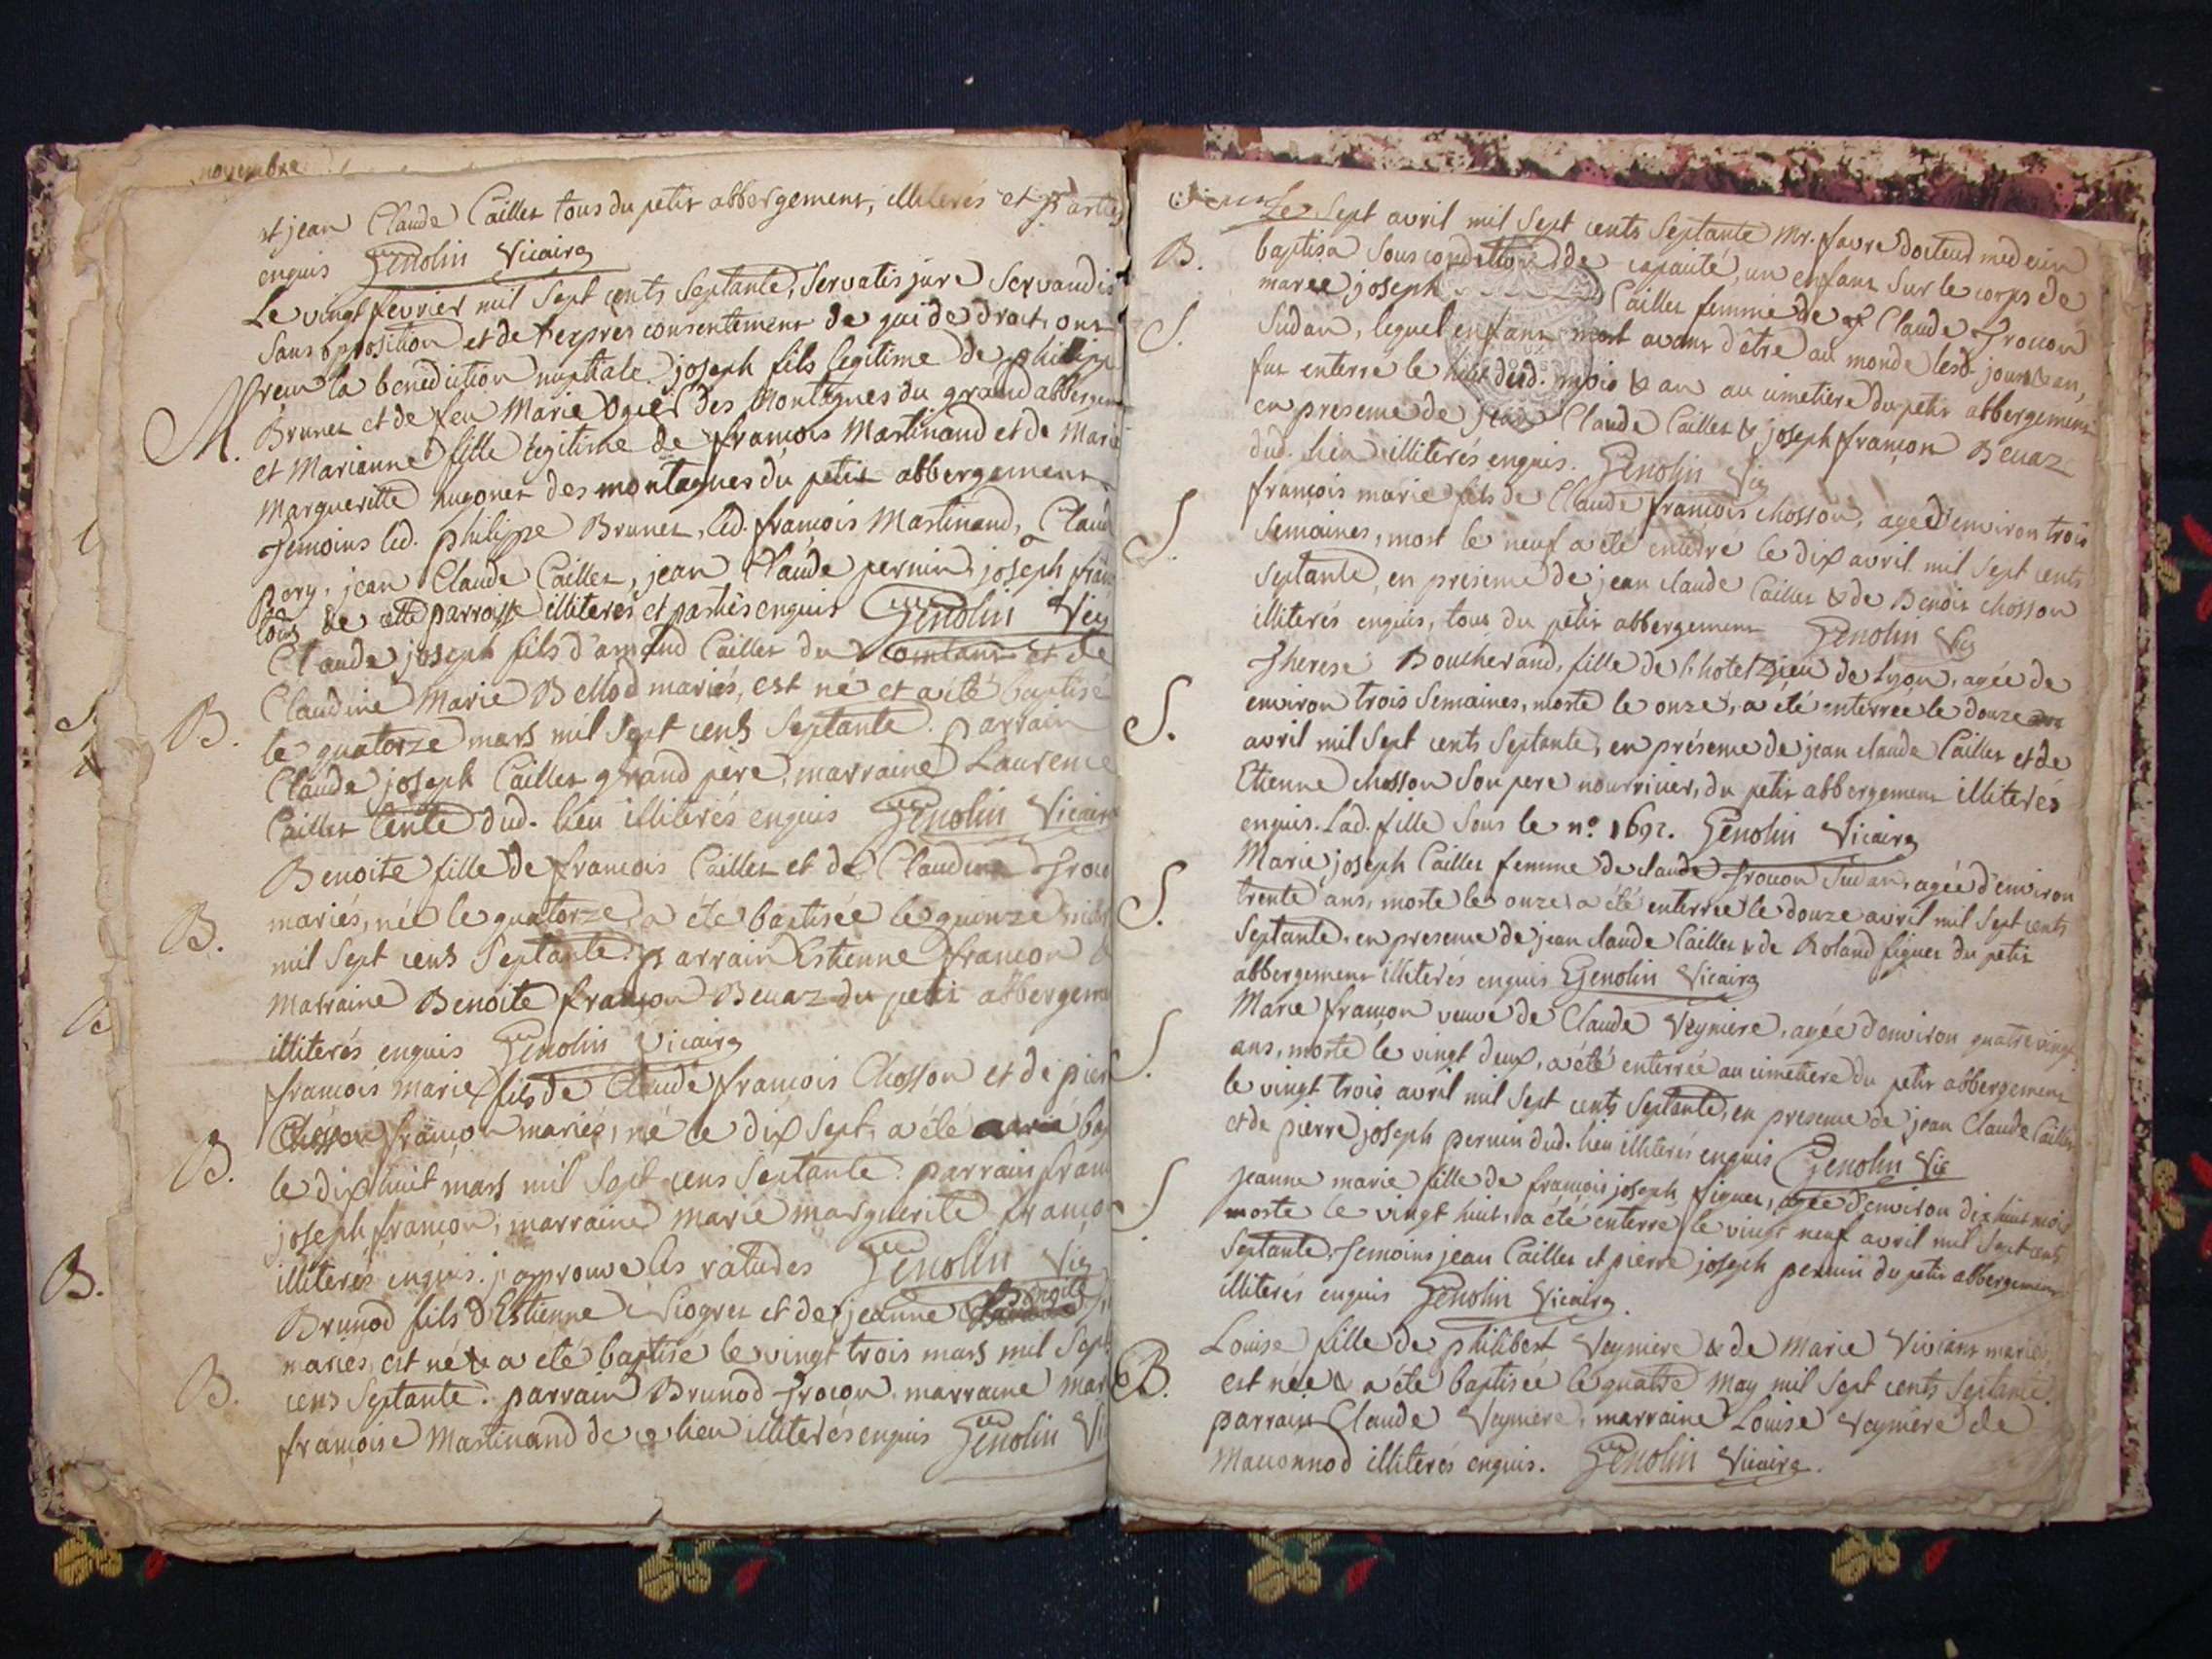 novembre
et jean Claude Caillet tous du petit abbergement, illiterés et parties
enquis Genolin Vicaire
Le vingt fevrier mil sept cents septante, servatis jure servandis
sans opposition et de l'exprès consentement de qui de droit, ont
M. recu la benediction nuptiale joseph fils legitime de philippe
Brunet et de feu Marie Ogier des Montagnes du grand abbergem
et Marianne fille legitime de françois Martinand et de Marie
Margueritte hugonet des montagnes du petit abbergement
Temoins led. philippe Brunet, led. françois Martinand, Claud
pery, jean Claude Caillet, jean Claude pernin, joseph fran
tous de cette parroisse illiterés et partiés enquis Genolin Vic
Claude joseph fils d'amand Caillet du et de
Claudine Marie Bellod mariés, est né et a été baptisé
B. le quatorze mars mil sept cens septante. Parrain
Claude joseph Caillet grand père, marraine Laurence
Caillet tente dud. lieu illiterés enquis Genolin Vicaire
Benoite fille de francois Caillet et de Claudine Trocon
B. mariés, née le quatorze a été baptisée le quinze mars
mil sept cens septante. parrain Estienne françon &
marraine Benoite françon Beuaz du petit abbergem
illiterés enquis Genolin Vicaire
francois Marie fils de Claude francois Chosson et de pier
françon mariés, né le dix sept, a été bap
B. le dix huit mars mil sept cens septante. parrain fran
joseph françon, marraine Marie Marguerite françon
illiterés enquis. j'approuve les ratudes Genolin Vic
Benoite
B. Brunod fils d'Estienne Siogret et de jeanne
mariés, est né & a été baptisé le vingt trois mars mil sept
B. cens septante. parrain Brunod Trocon marraine mar
françoise Martinand de ce lieu illiterés enquis Genolin Vic
Le Sept avril mil Sept cents Septante Mr. favre docteur medecin
B. baptisa sous condition de capauté, un enfant sur le corps de
marie joseph Caillet femme de Claude Trocon
S. Sudan, lequel enfant mort avant d'être au monde lesd. jour & an,
fut enterré le huit desd. mois & an au cimetiere du petit abbergement
en presence de jean Claude Caillet & joseph françon Beuaz
dud. lieu illiterés enquis. Genolin Vic
S. françois marie fils de Claude françois chosson, agé d'environ trois
semaines, mort le neuf a été enterré le dix avril mil sept cents
septante, en presence de jean claude Caillet & de Benoit chosson
illiterés enquis, tous du petit abbergement Genolin Vic
S. Therese Boucherand, fille de l'hotel Dieu de Lyon, agée de
environ trois semaines, morte le onze, a été enterrée le douze
avril mil sept cents septante, en présence de jean claude Caillet et de
Etienne chosson son pere nourricier, du petit abbergement illiterés
enquis. Lad. fille sous le n.° 1692. Genolin Vicaire
S. Marie joseph Caillet femme de claude Trocon Sudan, agée d'environ
trente ans, morte le onze a été enterrée le douze avril mil sept cents
septante, en presence de jean claude Caillet & de Roland figuet du petit
abbergement illiterés enquis Genolin Vicaire
S. Marie françon veuve de Claude Veyniere, agée d'environ quatre vingt
ans, morte le vingt deux, a été enterrée au cimetiere du petit abbergement
le vingt trois avril mil sept cents septante, en presence de jean Claude Caillet
et de pierre joseph pernin dud. lieu illiterés enquis Genolin Vic
S. jeanne marie fille de françois joseph figuet, agée d'environ dix huit mois
morte le vingt huit, a été enterré le vingt neuf avril mil sept cents
septante. Temoins jean Caillet et pierre joseph pernin du petit abbergement
illiterés enquis Genolin Vicaire.
Louise fille de philibert Veyniere & de Marie Viviant mariés,
B. est née & a été baptisée le quatre may mil sept cents septante.
parrain Claude Veyniere, marraine Louise Veyniere de
Maconnod illiterés enquis. Genolin Vicaire.